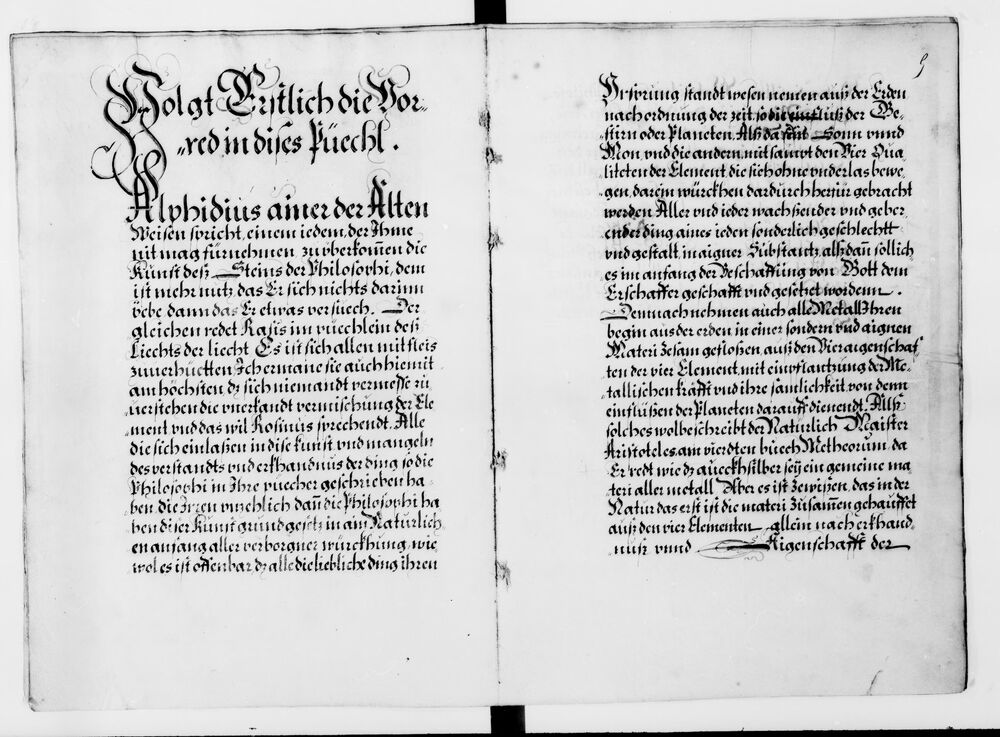 Volgt Erstlich die Vor=
=red in dises Püechl.
Alphidius ainer der Alten
Weisen spricht, einem iedem, der Ihme
nit mag fürnehmen zuberkom̄en die
Kunst desz Steins der Philosophi, dem
ist mehr nutz, das Er sich nichts darinn
yebe dann das Er etwas versuech. Der
gleichen redet Rasis im puechlein desz
Liechts der liecht Es ist sich allen mit fleis
zuuerhuetten Ich ermane sie auch hiemit
am höchsten dz sich niemandt vermesse zu
uerstehen die vnerkandt vermischung der Ele
ment vnd das wil Rosinus sprechendt. Alle
die sich einlaßen in dise kunst vnd mangeln
des verstandts vnd erkhandnus der ding so die
Philosophi in Ihre puecher geschrieben ha
ben die Irren vnzehlich dan̄ die Philosophi ha
ben diser Kunst grund gesetz in ain Natürlich
en anfang aller verborgner würckhung, wie
wol es ist offenbar dz alle die liebliche ding ihren
9
Vrsprung standt wesen nemen ausz der Erden
nach ordnung der zeit, so die einflusz der Ge=
stirn oder Planeten, Alsz da seint Sonn vnnd
Mon, vnd die andern, mit sampt den Vier Qua
liteten der Element die sich ohne vnderlas bewe
gen, darein würckhen dardurch herfür gebracht
werden Aller vnd ieder wachsender vnd geber
ender ding aines ieden sonderlich geschlechtt
vnd gestalt, in aigner Substantz, alsz dan̄ sollich
es im anfang der Beschaffung von Gott dem
Erschaffer geschafft vnd gesetzet worden.
Demnach nehmen auch alle Metall Ihren
begin aus der erden in einer sondern vnd aignen
Materi zesam gefloßen, ausz den Vier aigenschaf
ten der vier Element, mit einpflantzung der Me=
tallischen kräfft vnd ihre samlichkeit von denn
einflüßen der Planeten darauff dienendt. Alsz
solches wol beschreibt der Natürlich Maister
Aristoteles, am vierdten buech Metheorum, da
Er redt wie dz queckhsilber sey ein gemeine ma
teri aller metall Aber es ist Zewißen, das in der
Natur das erst ist die materi Zusam̄en gehaufftet
ausz den vier Elementen, allein nach erkhand
nusz vnnd Aigenschafft der